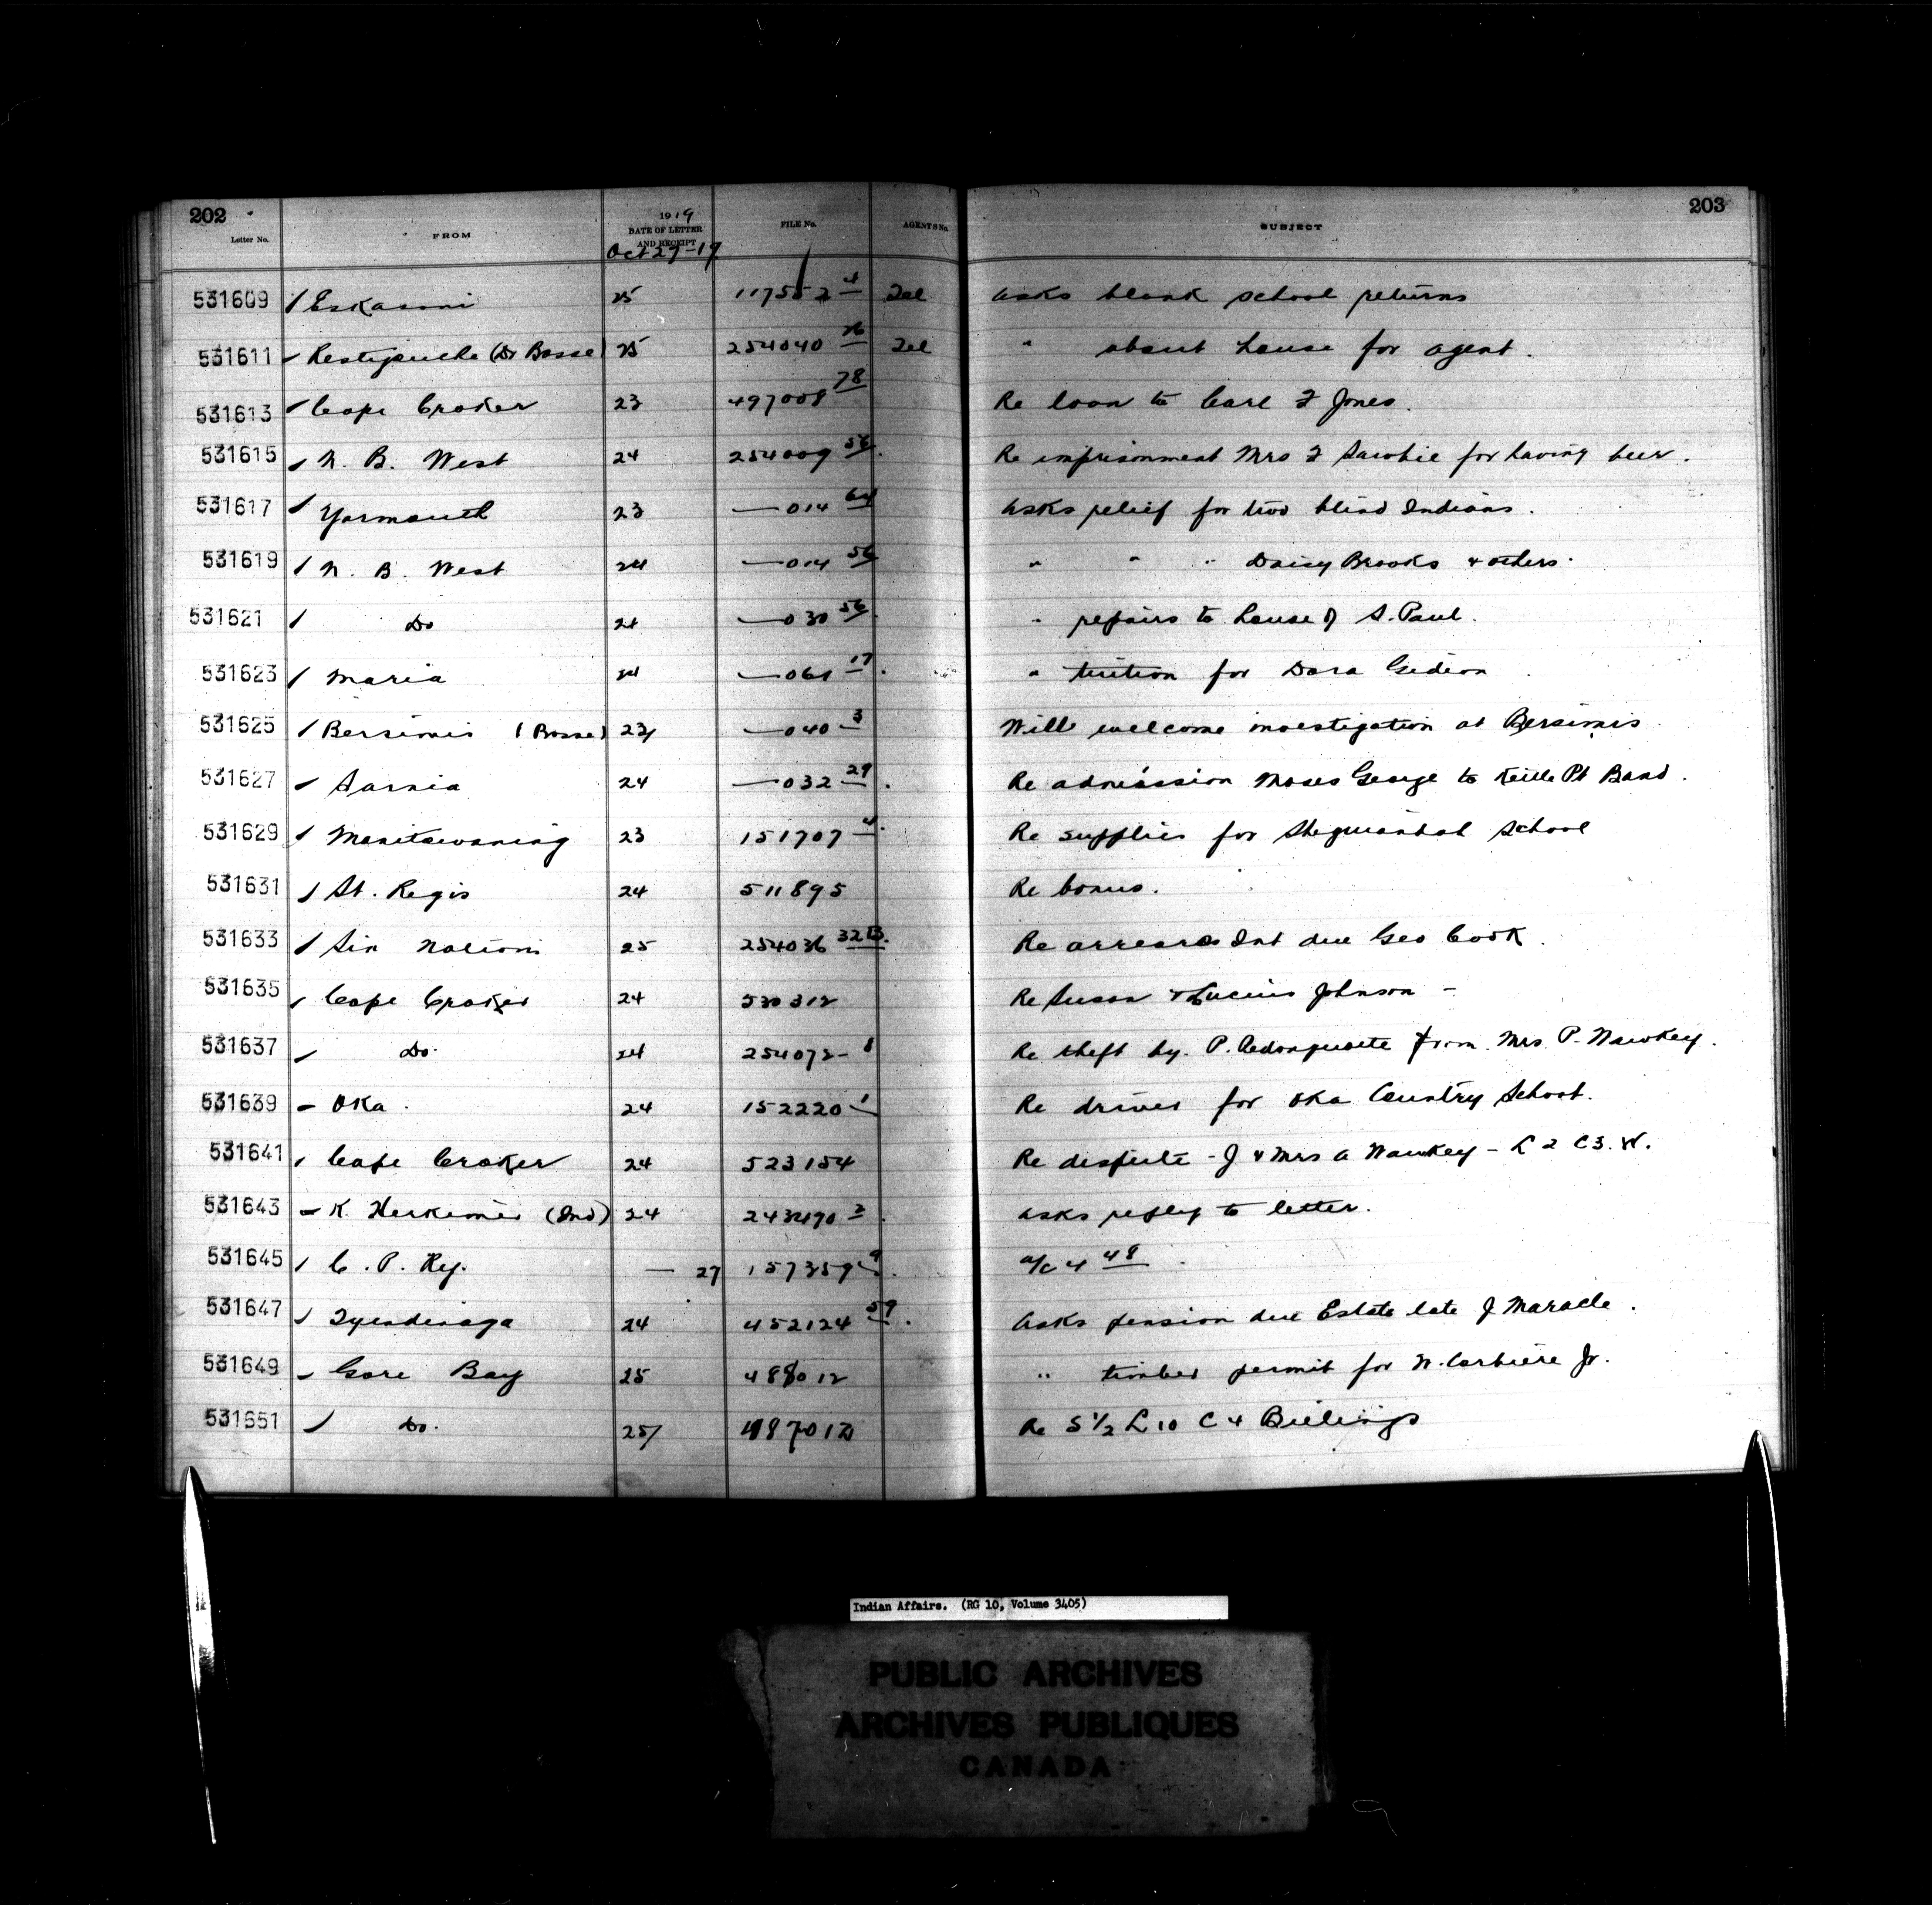 202
203
Letter No. FROM 1919 DATE OF LETTER AND RECEIPT FILE No. AGENTS No. SUBJECT
Oct 27-19
531609 Eskasoni 25 117552 4 Tel asks blank school returns
531611 Restigouche (Dr Bosse) 25 254040 26 Tel " about house for agent.
531613 Cape Croker 23 497008 78 Re loan to Carl F Jones.
531615 N. B. West 24 254009 56 Re imprisonment Mrs F for having beer.
531617 Yarmouth 23 —014 64 asks relief for two blind Indians.
531619 N. B. West 24 —014 56 " " " Daisy Brooks & others.
531621 Do 24 —030 56 " repairs to house of S. Paul.
531623 Maria 24 —061 17 " tuition for Dora Gedeon
531625 Bersimis (Bosse) 23 —040 3 Will welcome investigation at Bersimis
531627 Sarnia 24 —032 29 Re admission Moses George to Kettle Pt Band.
531629 Manitowaning 23 151707 4 Re supplies for school
531631 St. Regis 24 511895 Re bonus.
531633 Six Nations 25 254036 32B Re arrears Int due Geo Cook.
531635 Cape Croker 24 530312 Re Susan & Lucius Johnson -
531637 Do. 24 254072- 8 Re theft by P. from Mrs P. Nawkey.
531639 Oka. 24 152220 1 Re driver for Oka Country School.
531641 Cape Croker 24 523154 Re dispute - J & Mrs A Nawkey - L 2 C3. W.
531643 K. Herkimer (Ind) 24 243490 2 asks reply to letter.
531645 C. P. Ry. — 27 157359 9 a/c 4 48
531647 Tyendinaga 24 452124 59 Asks pension due Estate late J Maracle.
531649 Gore Bay 25 488012 " timber permit for N. Corbiere Jr.
531651 Do. 25 487012 Re S 1/2 L 10 C 4 Billings
Indian Affairs. (RG 10, Volume 3405)
PUBLIC ARCHIVES
ARCHIVES PUBLIQUES
CANADA